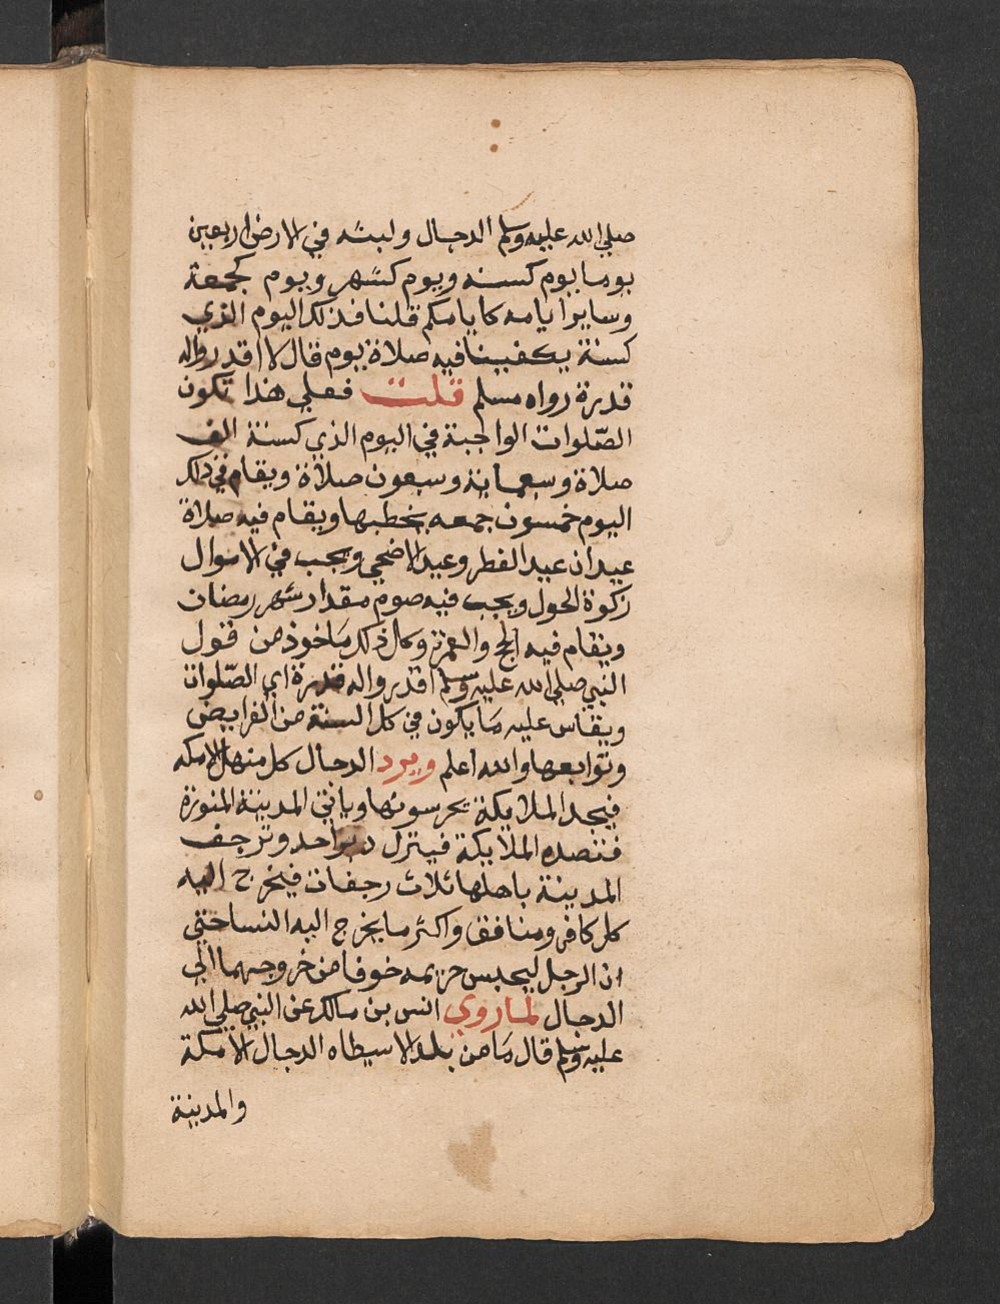 صلي الله عليه وسلم الدجال ولبثه في الارض اربعين
يوما يوم كسنه ويوم كشهر ويوم كجمعة
وسايرا يامه كايامكم قلنا فذلك اليوم الذي
كسنة يكفينا فيه صلاة يوم قال لا اقدرواله
قدرة رواه مسلم قلت فعلي هذا تكون
الصّلوات الواجبة في اليوم الذي كسنة الف
صلاة وسبعماية وسبعون صلاة ويقام في ذلك
اليوم خمسون جمعه بخطبها ويقام فيه صلاة
عيدان عيد الفطر وعيد الاضحي ويجب في الاموال
زكوة الحول ويجب فيه صوم مقدار شهر رمضان
ويقام فيه الحج والعمرة وكل ذلك مَاخوذ من قول
النبي صلي الله عليه وسلم اقدرواله قدرة اي الصّلوات
ويقاس عليه مَا يكون في كل السنة من الفرايض
وتوابعها والله اعلم ويرد الدجال كل منهل الا مكه
فيجد الملايكة يحرسونها وياتي المدينة المنورة
فتصده الملايكة فينزل واحد وترجف
المدينة باهلها ثلاث رجفات فيخرج اليه
كل كافر ومنافق واكثر ما يخرج اليه النسا حتي
ان الرجل ليحبس حريمه خوفا من خروجهما الي
الدجال لما روي انس بن مالك عن النبي صلي الله
عليه وسلم قال مَا من بلد الا سيطاه الدجال الا مكة
والمدينة